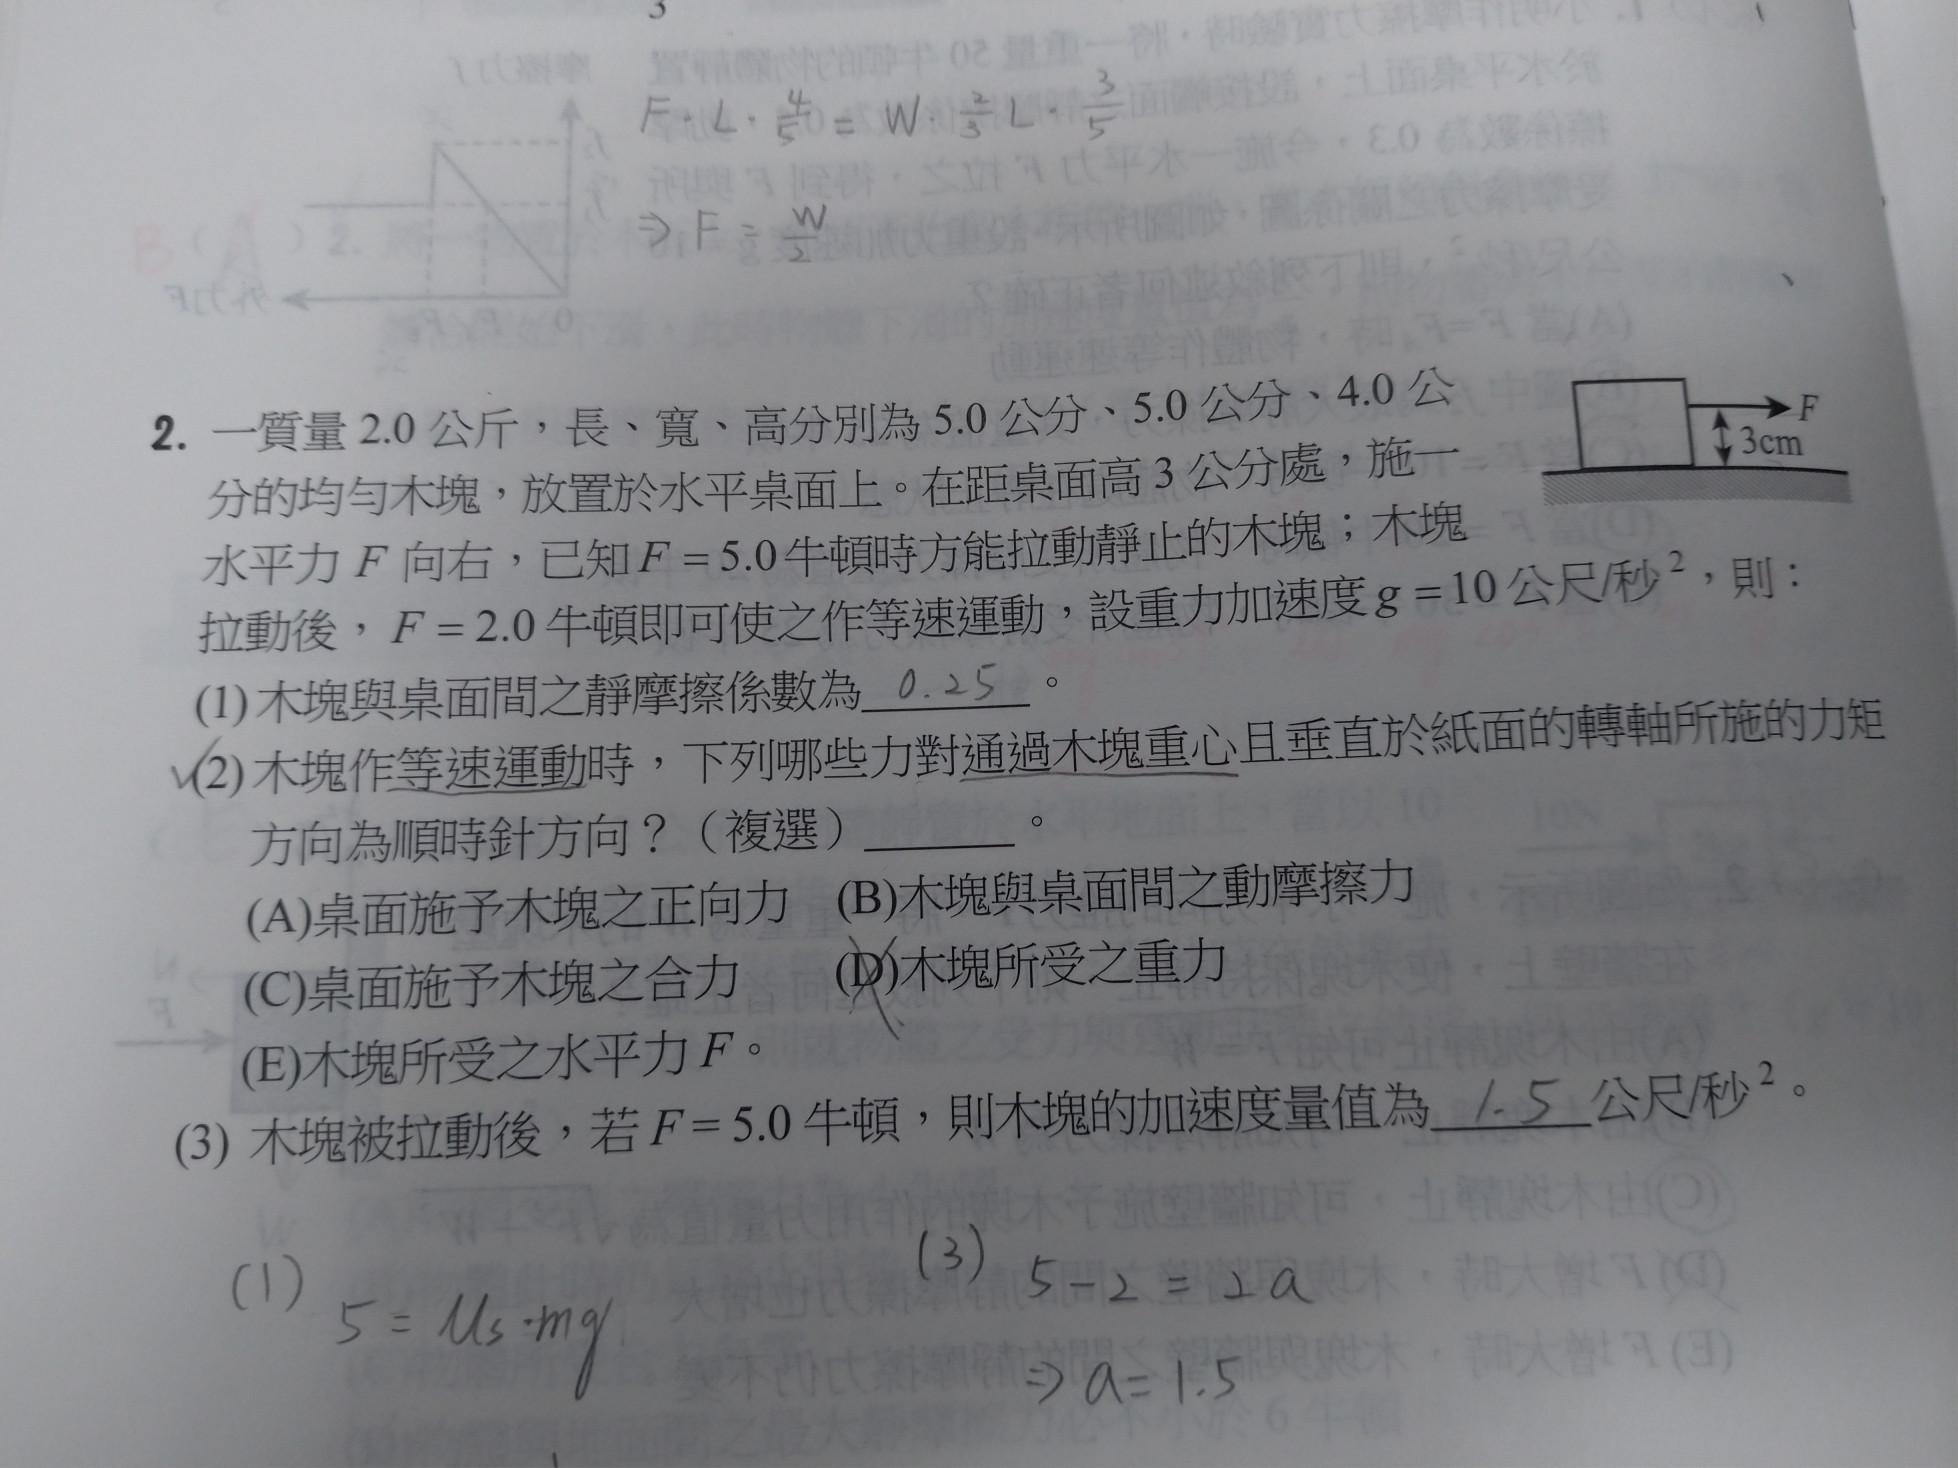 3
F · L · 4/5 = W · 2/3 L · 3/5
⇒ F = W/2
B ( ) 2.
2. 一質量 2.0 公斤，長、寬、高分別為 5.0 公分、5.0 公分、4.0 公
分的均勻木塊，放置於水平桌面上。在距桌面高 3 公分處，施一
水平力 F 向右，已知 F = 5.0 牛頓時方能拉動靜止的木塊；木塊
拉動後，F = 2.0 牛頓即可使之作等速運動，設重力加速度 g = 10 公尺/秒²，則：
F
3cm
(1) 木塊與桌面間之靜摩擦係數為 0.25 。
(2) 木塊作等速運動時，下列哪些力對通過木塊重心且垂直於紙面的轉軸所施的力矩
方向為順時針方向？（複選） 。
(A)桌面施予木塊之正向力 (B)木塊與桌面間之動摩擦力
(C)桌面施予木塊之合力 (D)木塊所受之重力
(E)木塊所受之水平力 F。
(3) 木塊被拉動後，若 F = 5.0 牛頓，則木塊的加速度量值為 1.5 公尺/秒²。
(1)
5 = μs · mg
(3) 5 - 2 = 2a
⇒ a = 1.5